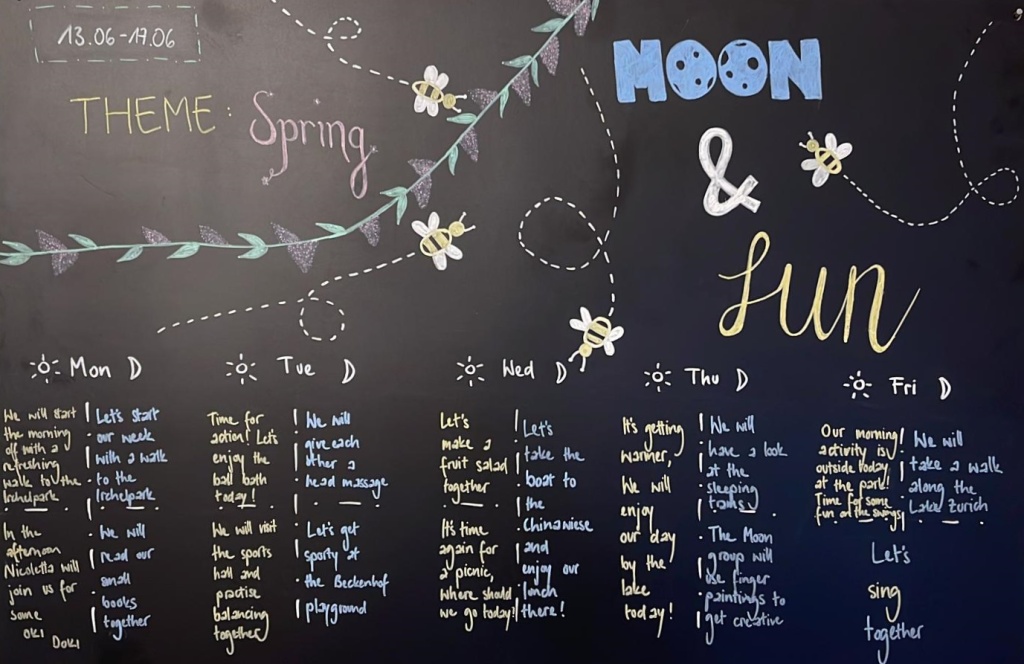 13.06-17.06
THEME: Spring
MOON
&
Sun
Mon
We will start
the morning
off with a
refreshing
walk to the
Irchelpark
In the
afternoon
Nicoletta will
join us for
some
OKI DOKI
Let's start
our week
with a walk
to the
Irchelpark
We will
read our
small
books
together
Tue
Time for
action! Let's
enjoy the
ball bath
today!
We will visit
the sports
hall and
practise
balancing
together
We will
give each
other a
head massage
Let's get
sporty at
the Beckenhof
playground
Wed
Let's
make a
fruit salad
together
It's time
again for
a picnic,
where should
we go today!
Let's
take the
boat to
the
Chinawiese
and
enjoy our
lunch
there!
Thu
It's getting
warmer,
We will
enjoy
our day
by the
lake
today!
We will
have a look
at the
sleeping
The Moon
group will
use finger
paintings to
get creative
Fri
Our morning
activity is
outside today
at the park!
Time for some
fun on the swings!
We will
take a walk
along the
Lake Zurich
Let's
sing
together